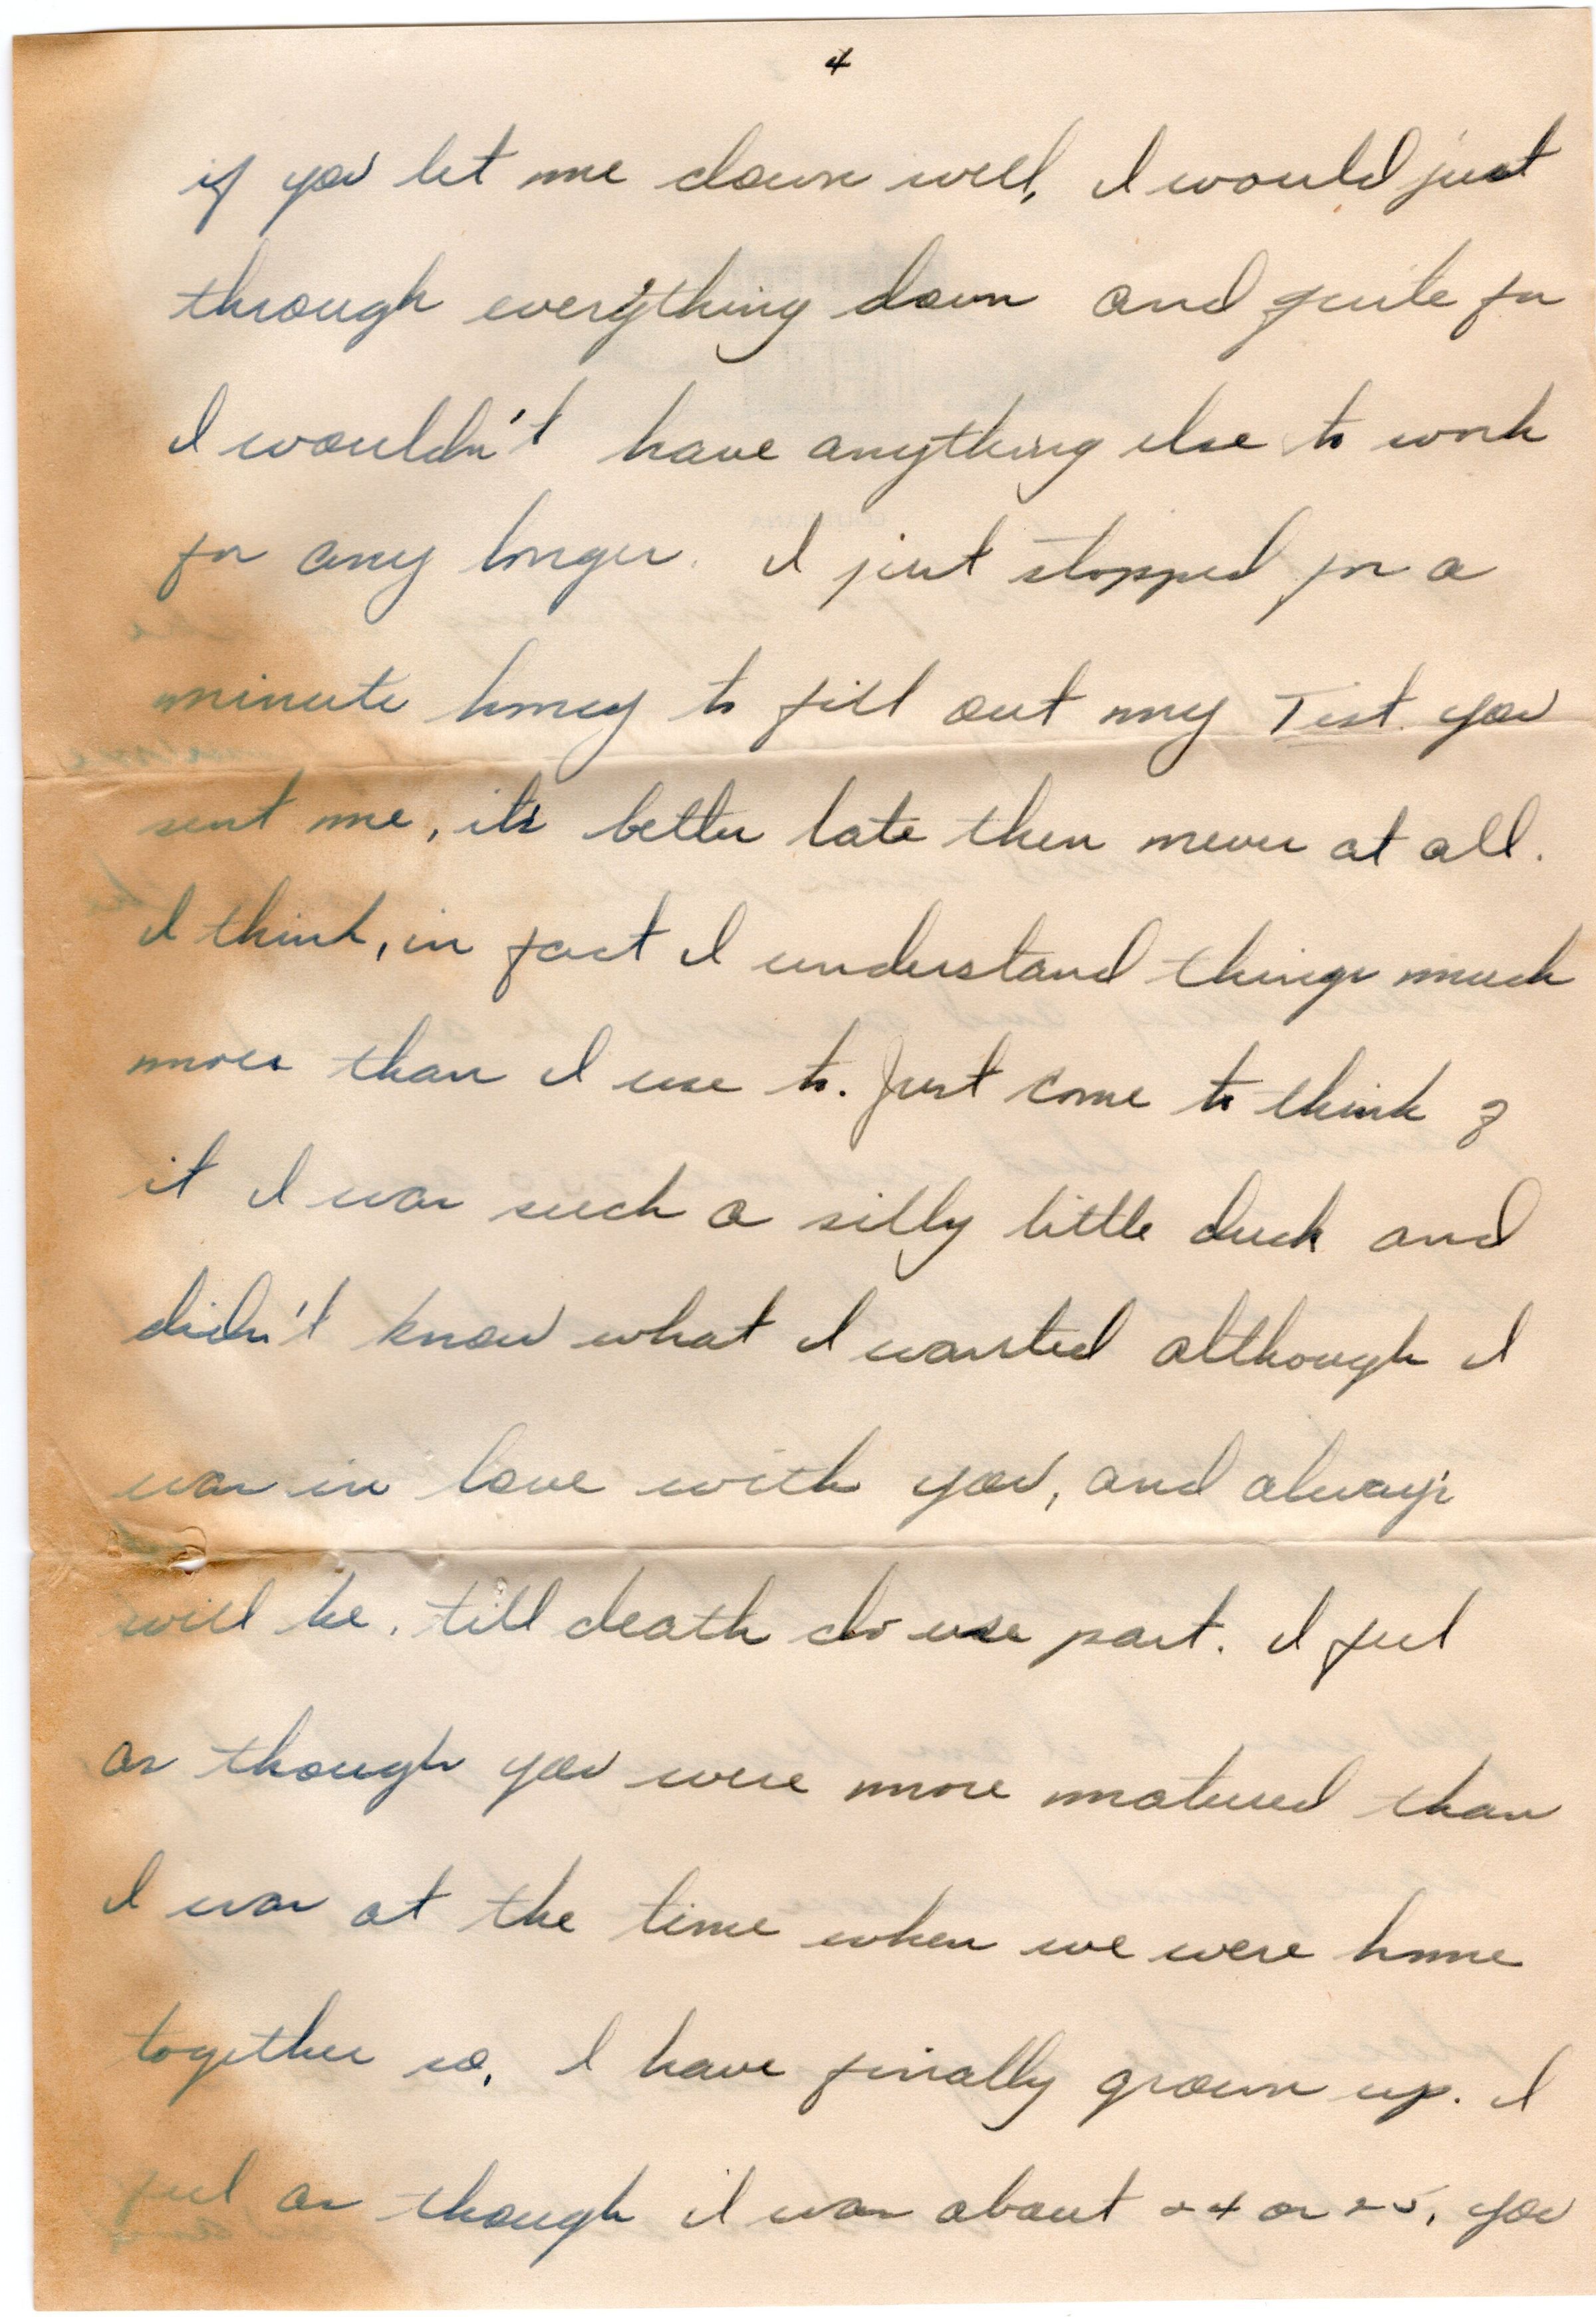 4
if you let me down well, I would just
through everything down and quite for
I wouldn't have anything else to work
for any longer. I just stopped for a
minute honey to fill out my Test you
sent me, it's better late then never at all.
I think, in fact I understand things much
more than I use to. Just come to think of
it I was such a silly little duck and
didn't know what I wanted although I
was in love with you, and always
will be. till death do use part. I feel
as though you were more matured than
I was at the time when we were home
together so, I have finally grown up. I
feel as though I was about 24 or 25, you